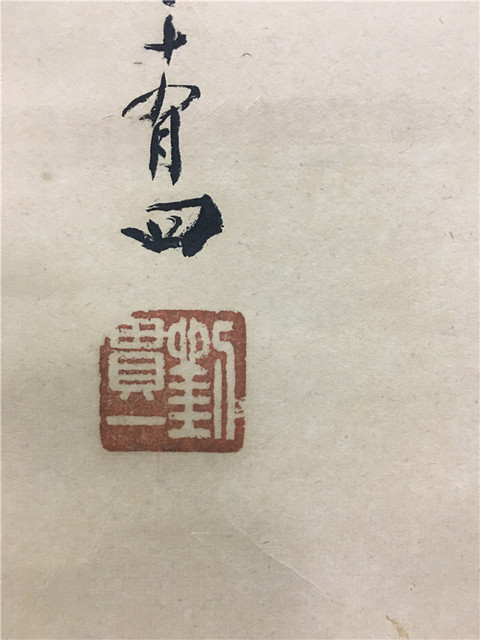 十有四
劉貴一